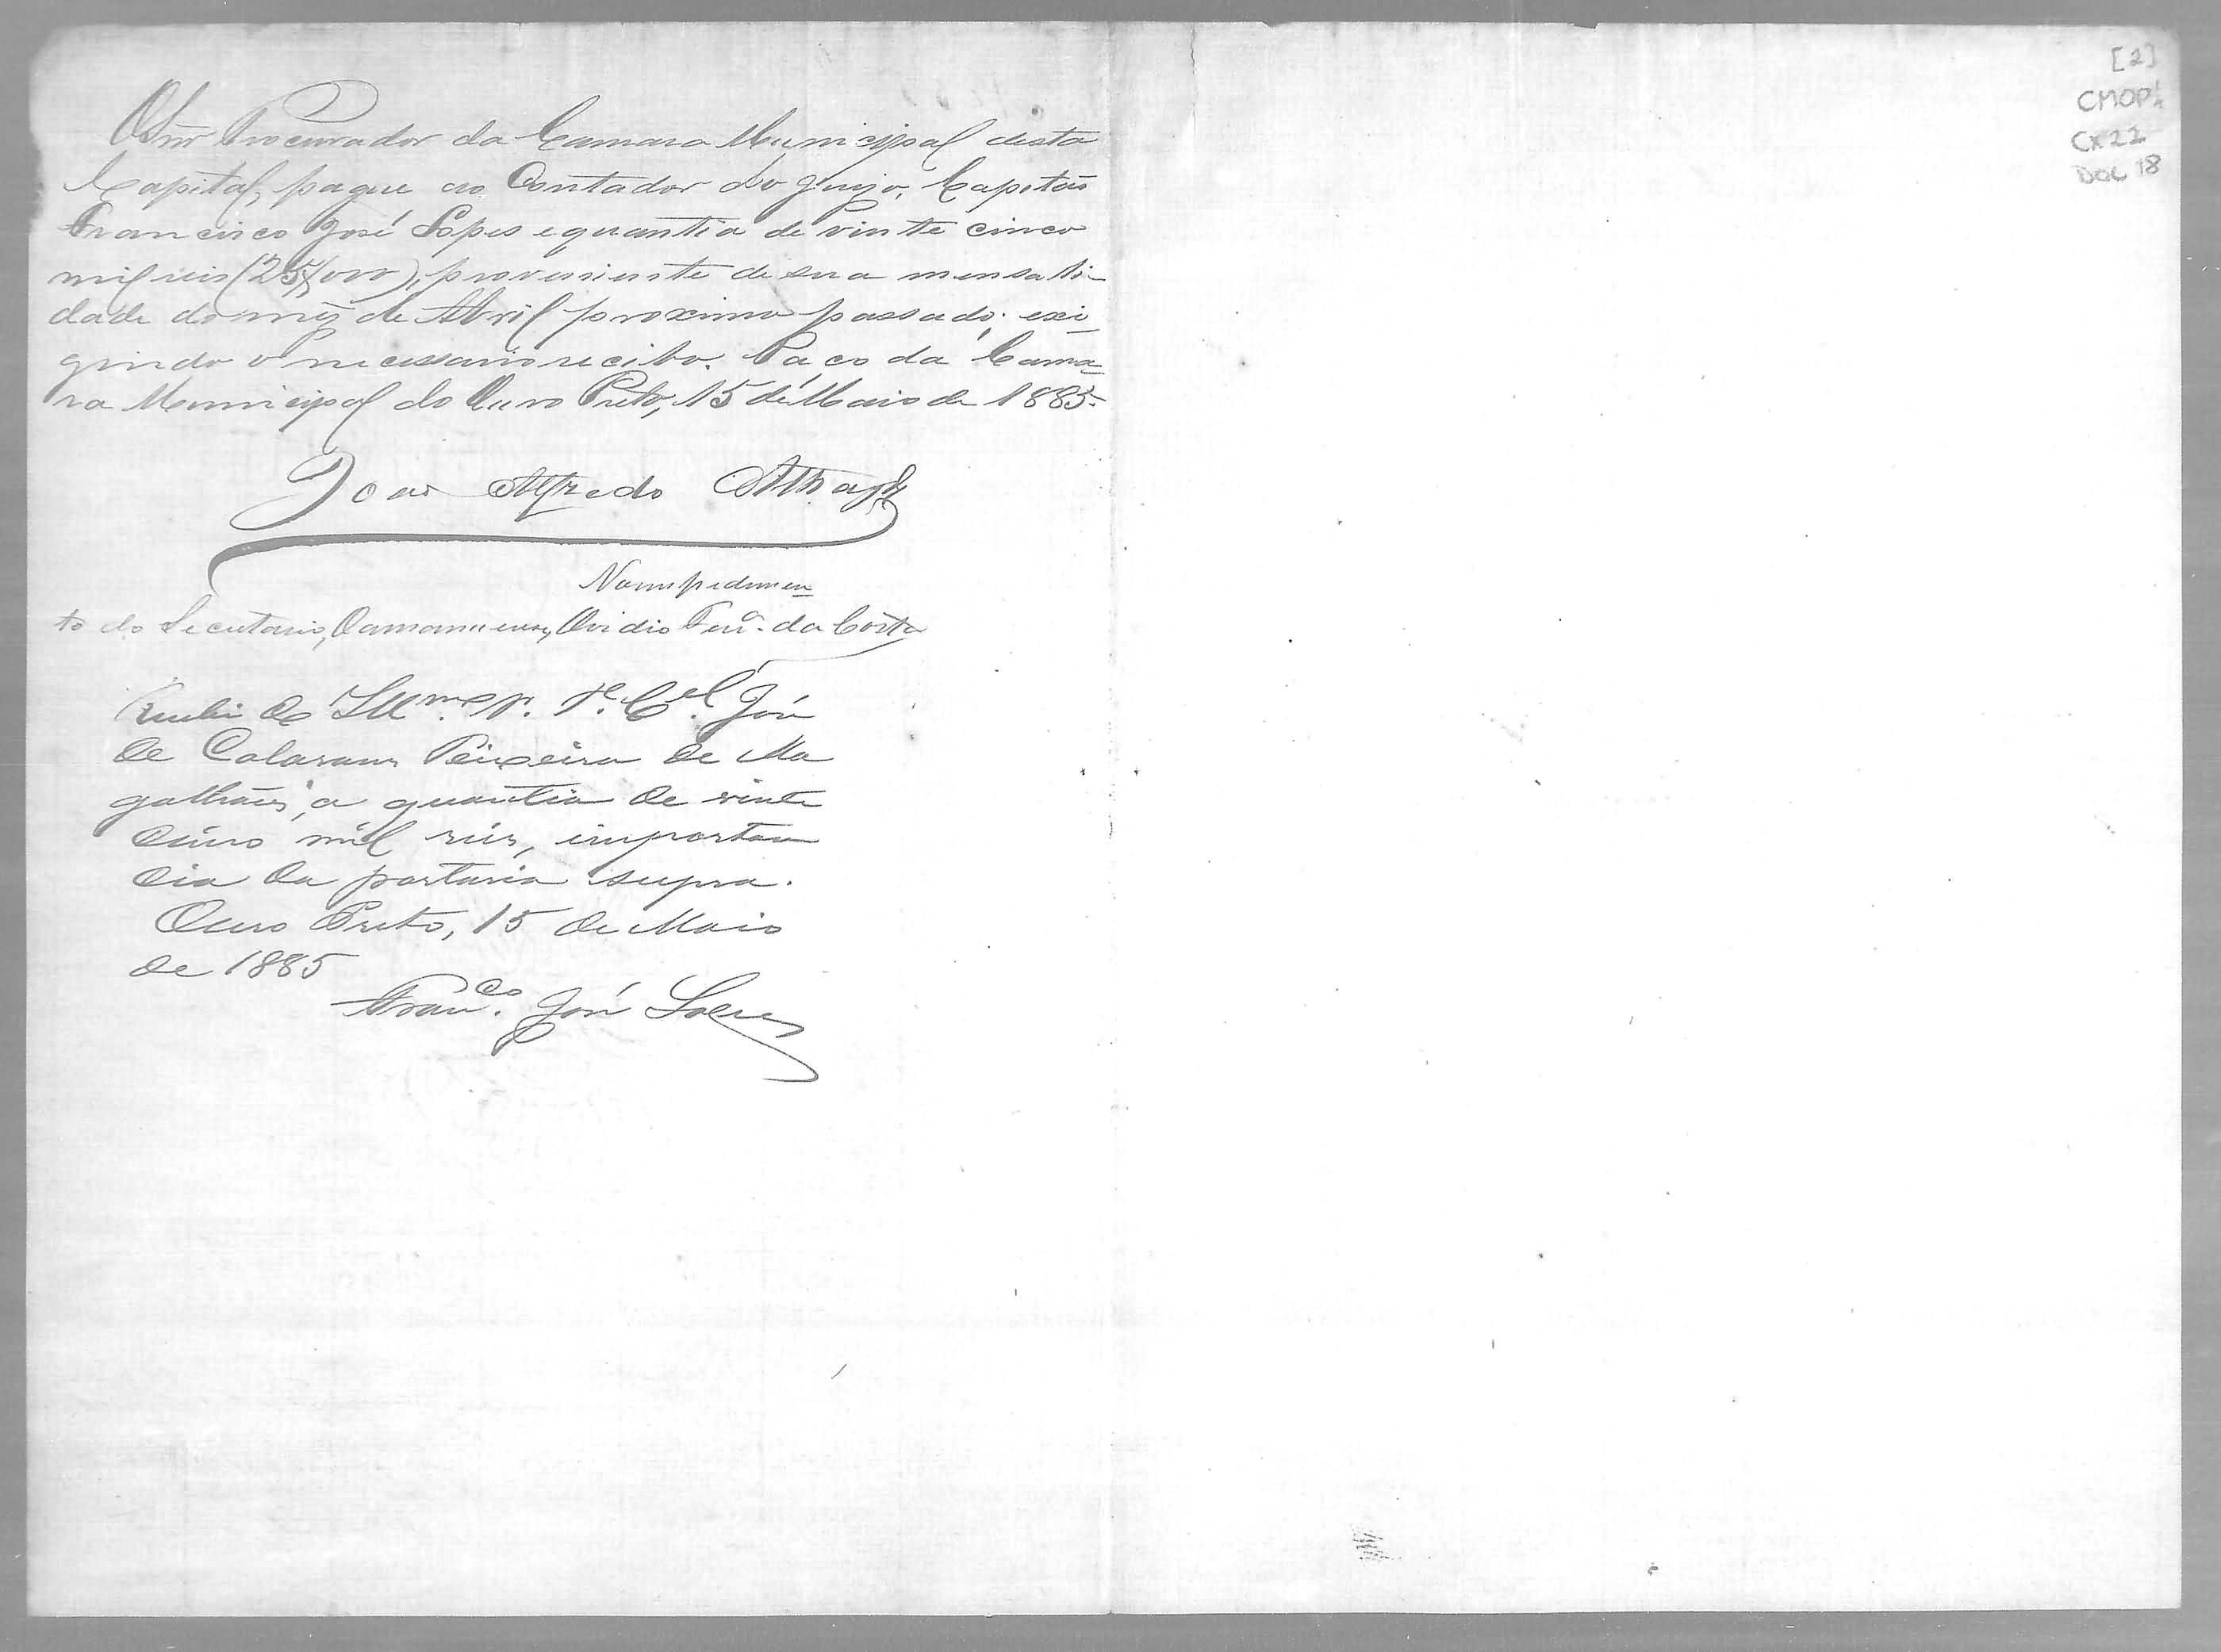 O Snr Procurador da Camara Municipal desta
Capital, pague ao Contador do Juizo, Capitão
Francisco José Lopes a quantia de vinte cinco
mil reis (25$000), proveniente de sua mensali-
dade do mez de Abril proximo passado; exi-
gindo o necessario recibo. Paço da Cama-
ra Municipal do Ouro Preto, 15 de Maio de 1885.
João Alfredo
No impedimen-
to do Secretario, O amanuense, Ovidio Ferr.ª da Costa
Recebi do Illmo. Sr. Te. Cel. José
de Calasans Teixeira de Ma
galhães, a quantia de vinte
cinco mil réis, importan
cia da portaria supra.
Ouro Preto, 15 de Maio
de 1885
Fran.co José Lopes
[2]
CMOP
CX22
DOC 18